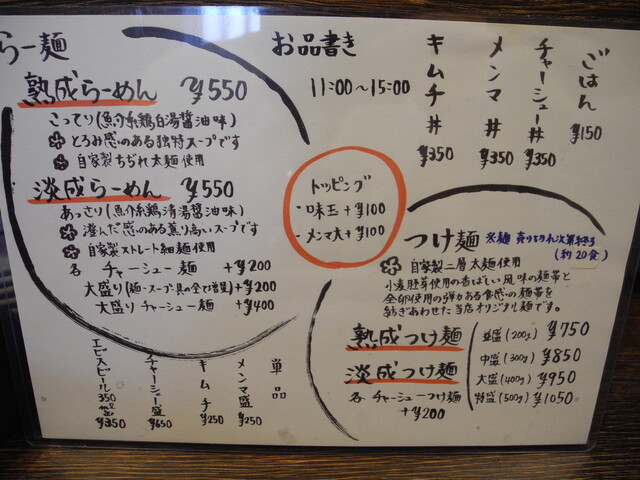 らー麺
熟成らーめん ¥550
こってり(魚介系鶏白湯醤油味)
とろみ感のある独特スープです
自家製ちぢれ太麺使用
淡成らーめん ¥550
あっさり(魚介系鶏清湯醤油味)
澄んだ感のある薫り高いスープです
自家製ストレート細麺使用
各 チャーシュー麺 +¥200
大盛り(麺・スープ・具の全て増量)+¥200
大盛り チャーシュー麺 +¥400
お品書き
11:00〜15:00
トッピング
・味玉+¥100
・メンマ大+¥100
ごはん ¥150
チャーシュー丼 ¥350
メンマ丼 ¥350
キムチ丼 ¥350
つけ麺 ※麺 売り切れ次第終了
(約20食)
自家製二層太麺使用
小麦胚芽使用の香ばしい風味の麺帯と
全卵使用の弾力ある食感の麺帯を
紡ぎあわせた当店オリジナル麺です。
熟成つけ麺
淡成つけ麺
各 チャーシューつけ麺
+¥200
並盛(200g) ¥750
中盛(300g) ¥850
大盛(400g) ¥950
特盛(500g) ¥1050
単品
メンマ盛 ¥250
キムチ ¥250
チャーシュー盛 ¥650
エビスビール350ml缶 ¥350